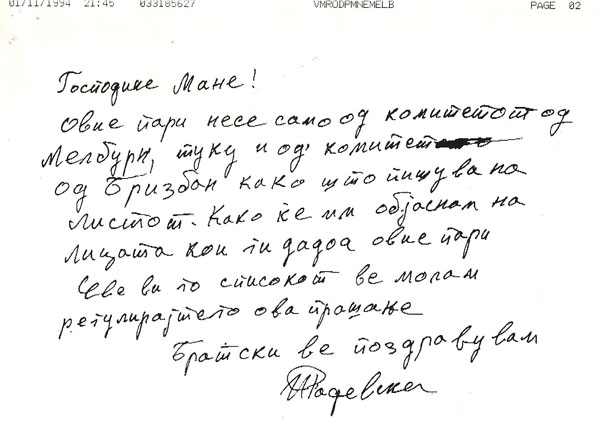 01/11/1994 21:45 033185627 VMRODPMNEMELB PAGE 02
Господине Мане!
Овие пари несе само од комитетот од
Мелбурн, туку и од комитет
од Бризбан како што пишува на
листот. Како ќе им објаснам на
лицата кои ги дадоа овие пари
Еве ви го списокот ве молам
регулирајтего ова прашање
Братски ве поздравувам